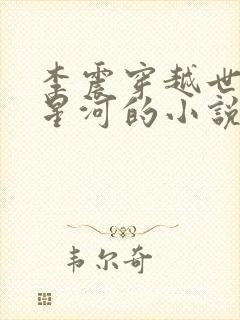 李震穿越世
星河的小説
韦尔奇